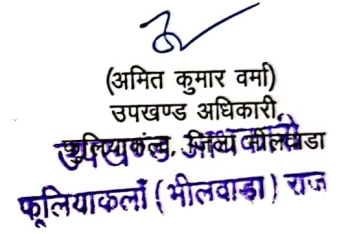 (अमित कुमार वर्मा)
उपखण्ड अधिकारी,
फूलियाकलां, जिला भीलवाडा
उपखण्ड अधिकारी
फूलियाकलाँ (भीलवाड़ा) राज